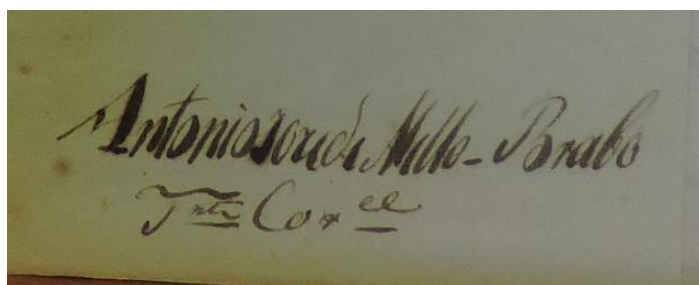 Antonio Jozé de Mello Brabo
Tnte Corel